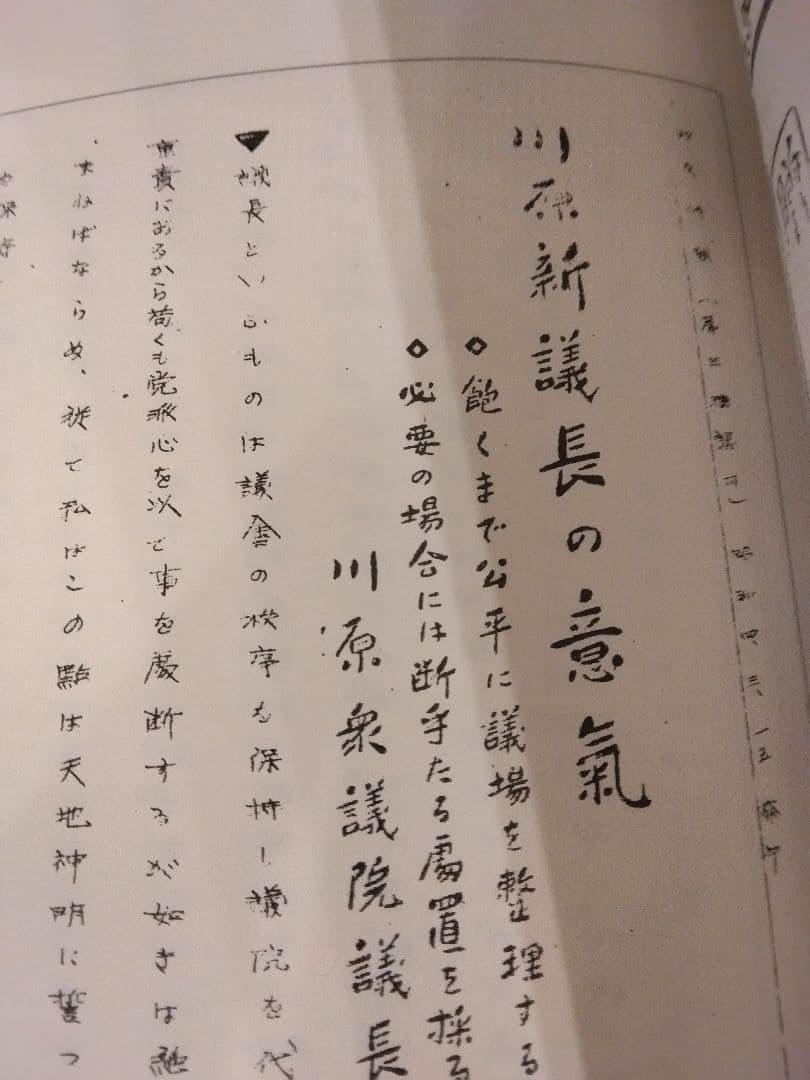 昭和四、三、一五 発行
川原新議長の意氣
◇飽くまで公平に議場を整理する
◇必要の場合には断乎たる處置を採る
川原衆議院議長
▼議長といふものは議會の秩序を保持し議院を代
重責におるから苟くも党派心を以て事を處断するが如きは
すねばならぬ、従て私はこの點は天地神明に誓つ